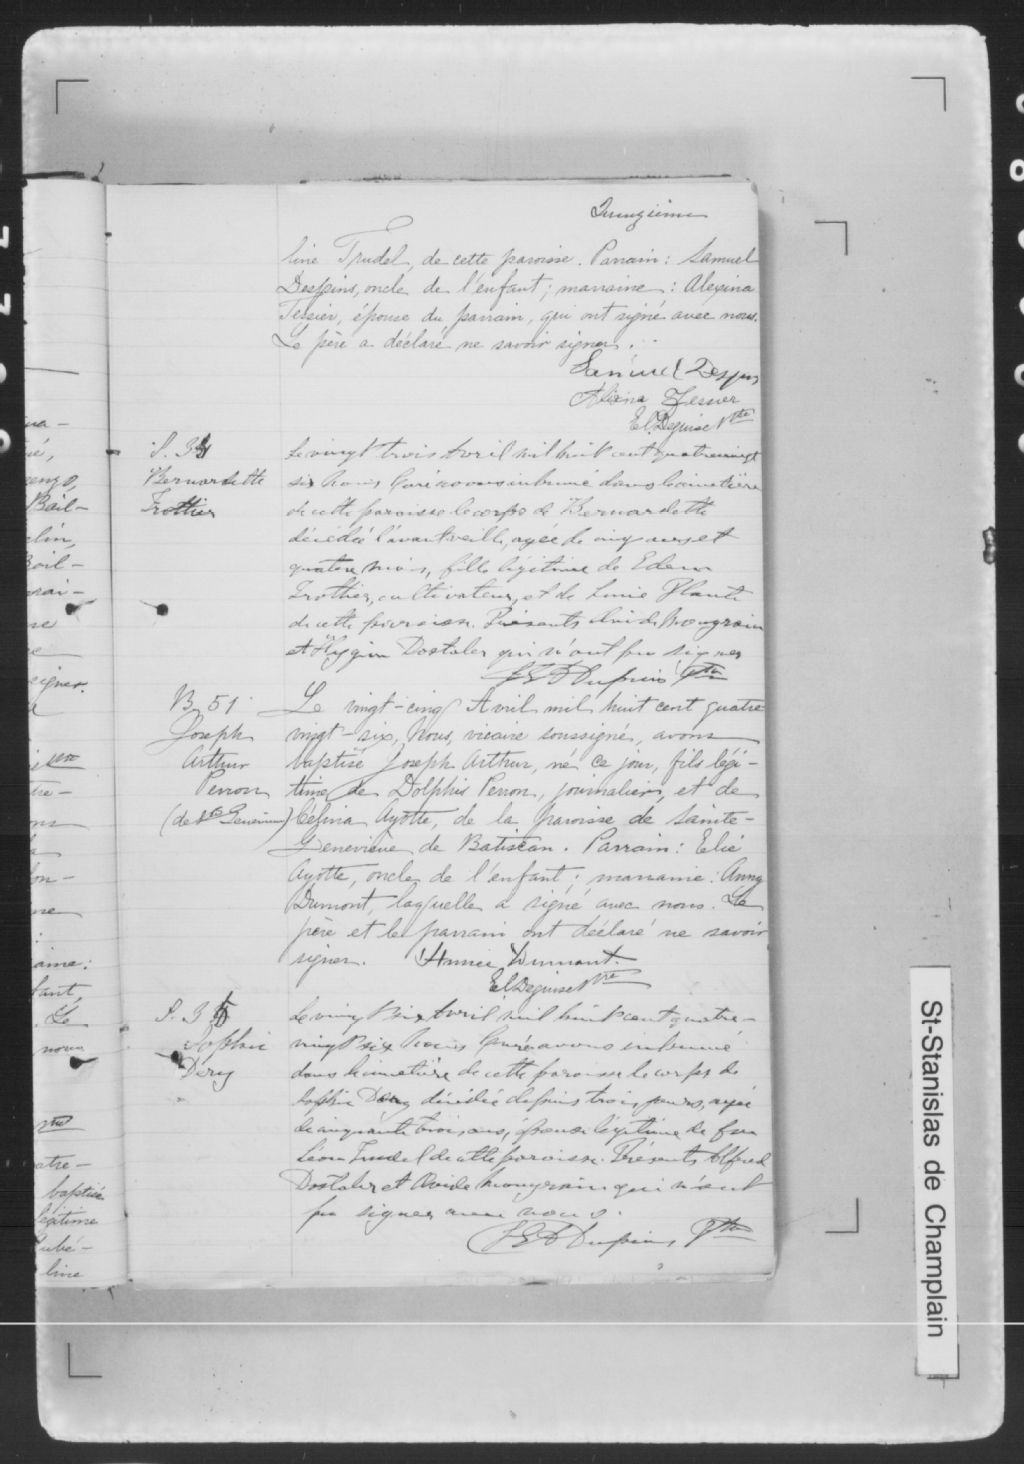 Quinzième
line Trudel, de cette paroisse. Parrain: Samuel
Despins, oncle de l'enfant; marraine: Alexina
Tessier, épouse du parrain, qui ont signé avec nous.
Le père a déclaré ne savoir signer.
Samuel Despins
Alexina Tessier
El. Deguise Ptre
S. 34
Bernardette
Trottier
Le vingt trois Avril mil huit cent quatrevingt
six Nous Curé avons inhumé dans le cimetière
de cette paroisse le corps de Bernardette
décédée l'avant veille, agée de cinq ans et
quatre mois, fille légitime de
Trottier, cultivateur, et de Plante
de cette paroisse. Présents Mongrain
et Hygin Dostaler qui n'ont pu signer
Dupuis Ptre
B 51
Joseph
Arthur
Perron
(de Ste Geneviève)
Le vingt-cinq Avril mil huit cent quatre
vingt-six, Nous, vicaire soussigné, avons
baptisé Joseph Arthur, né ce jour, fils légi-
time de Dolphis Perron, journalier, et de
Célina Ayotte, de la paroisse de Sainte-
Geneviève de Batiscan. Parrain: Elie
Ayotte, oncle de l'enfant; marraine: Anny
Dumont, laquelle a signé avec nous. Le
père et le parrain ont déclaré ne savoir
signer. Dumont.
El. Deguise Ptre
S. 35
Sophie
Dery
Le vingt six Avril mil huit cent quatre-
vingt six Nous Curé avons inhumé
dans le cimetière de cette paroisse le corps de
Sophie Dery décédée depuis trois jours, agée
de cinquante trois ans, épouse légitime de feu
Léon Trudel de cette paroisse. Présents Alfred
Dostaler et Ovide Mongrain qui n'ont
pu signer avec nous.
Dupuis Ptre
St-Stanislas de Champlain